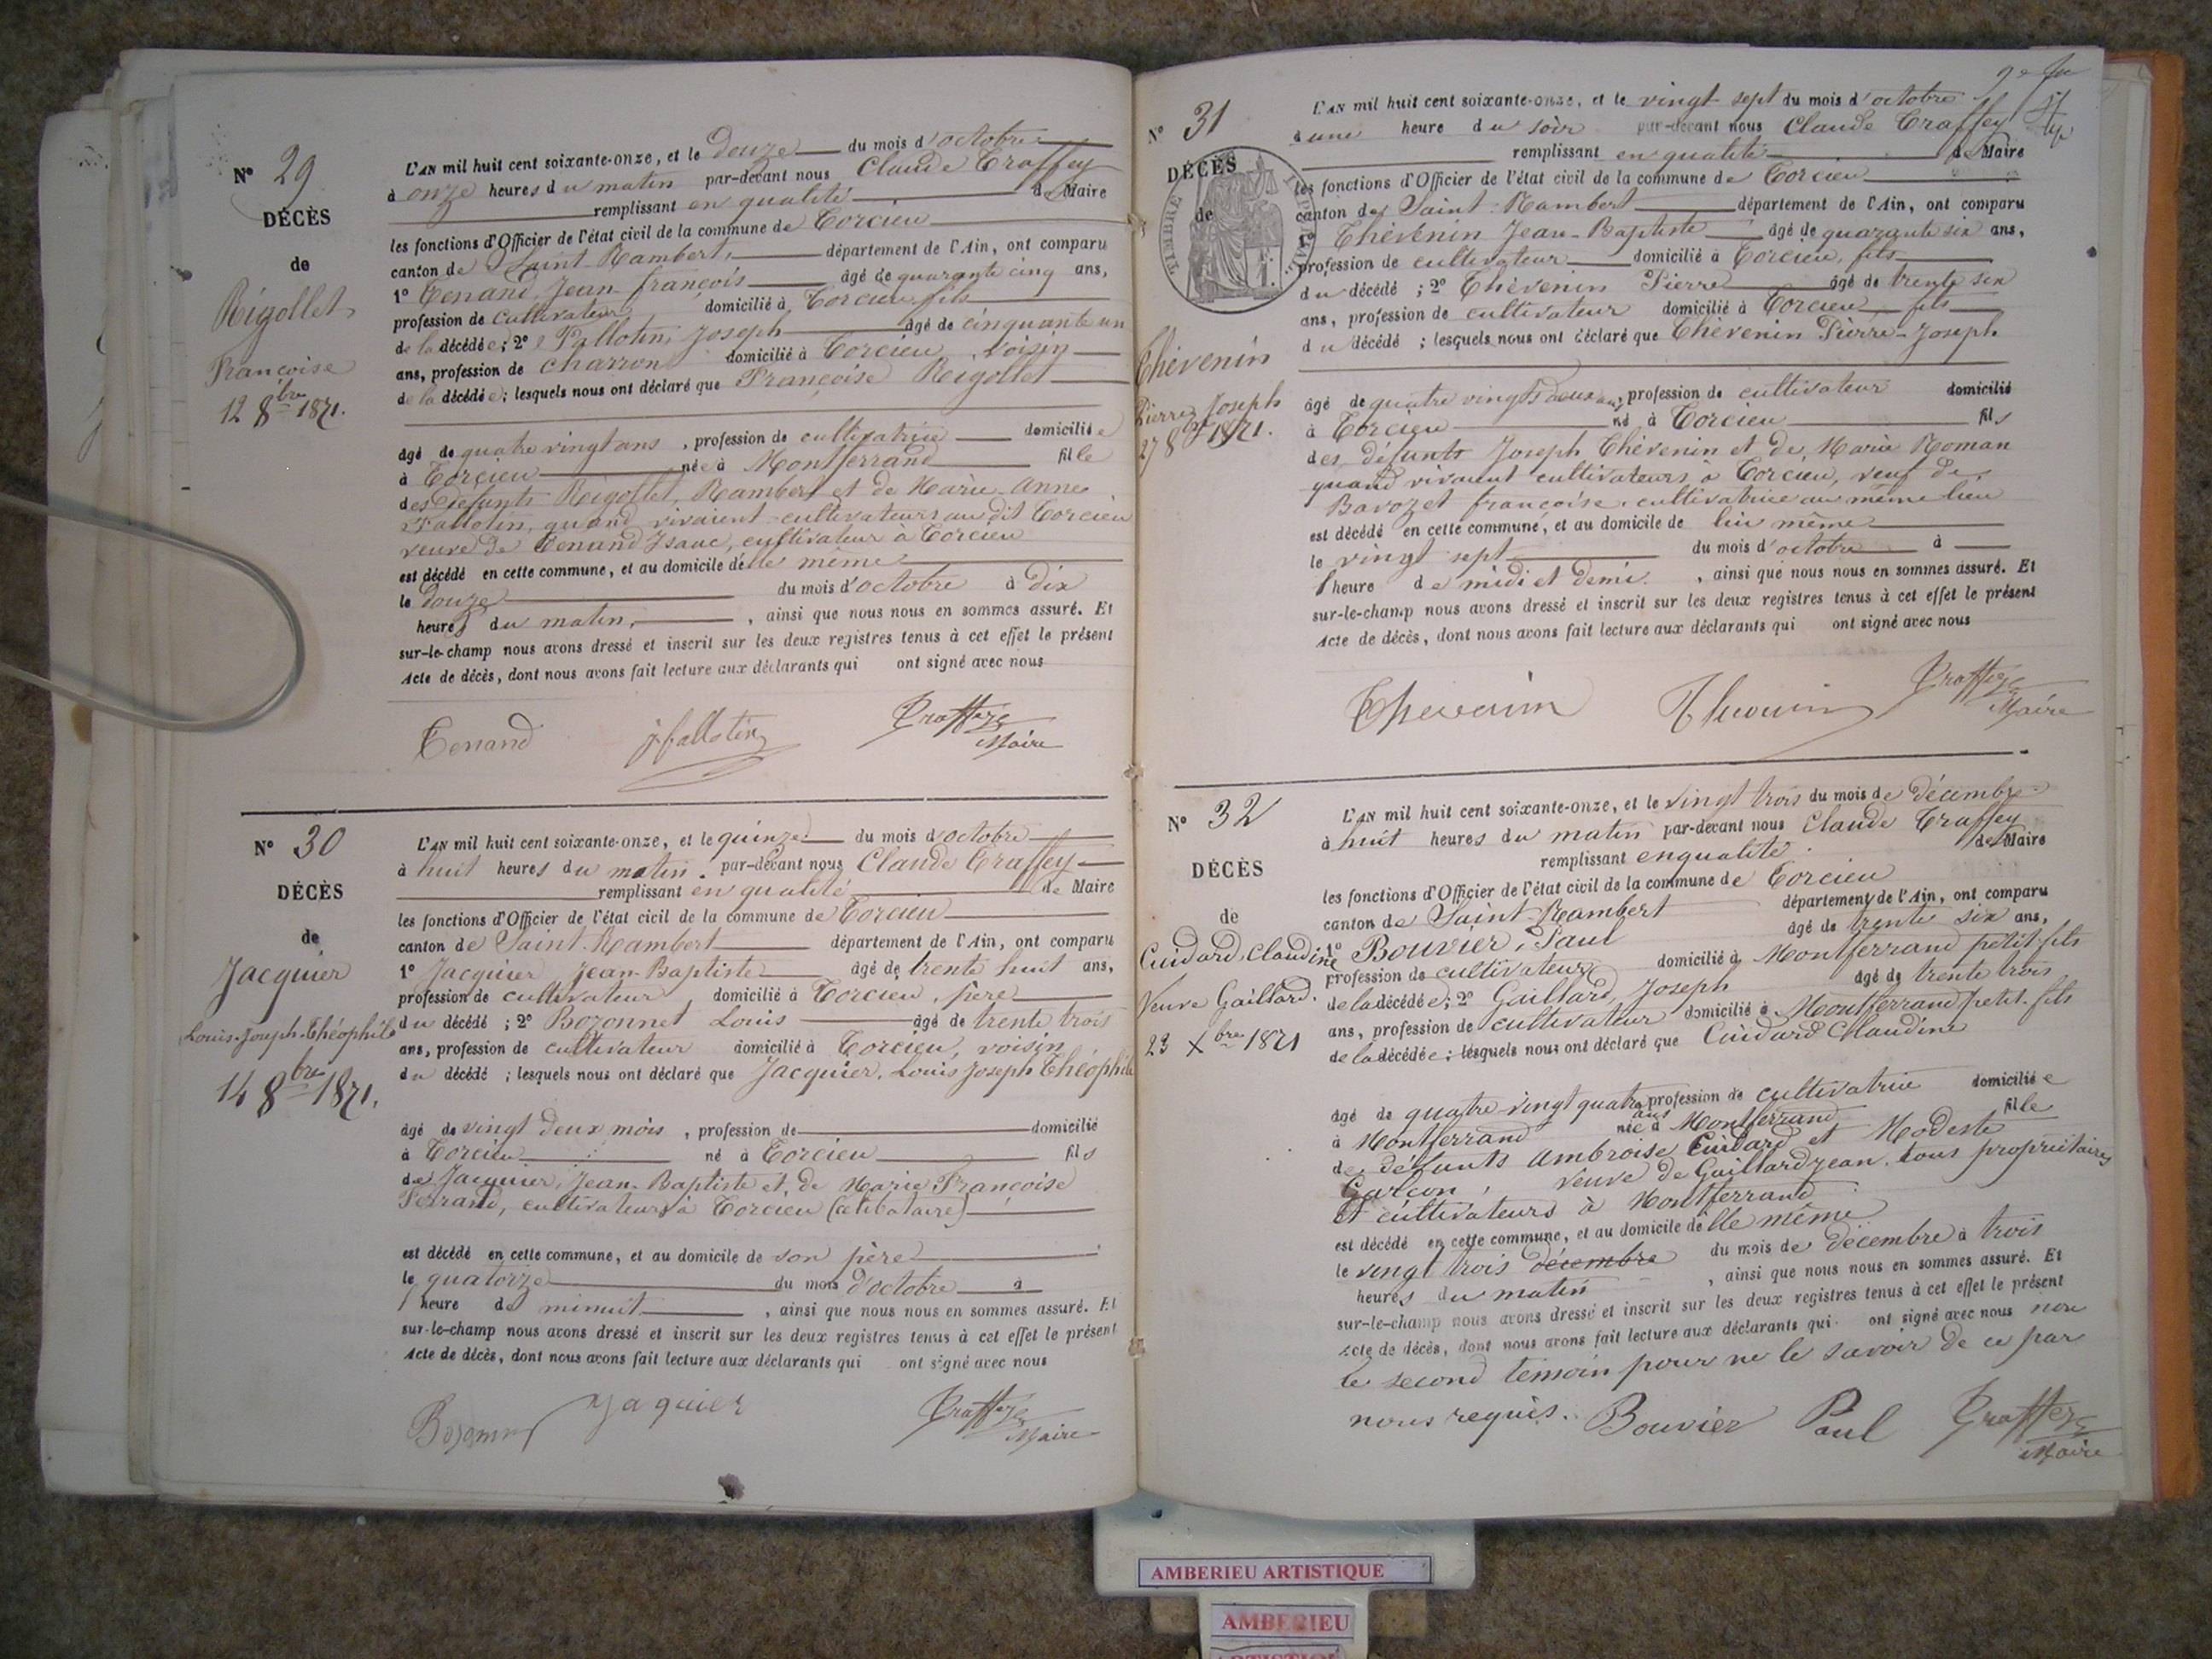 N° 29
DÉCÈS
de
Rigollet
Françoise
12 8bre 1871.
L'AN mil huit cent soixante-onze, et le douze du mois d'octobre
à onze heures du matin par-devant nous Claude Traffey
remplissant en qualité de Maire
les fonctions d'Officier de l'état civil de la commune de Torcieu
canton de Saint-Rambert, département de l'Ain, ont comparu
1° Tenand, Jean-françois âgé de quarante cinq ans,
profession de cultivateur domicilié à Torcieu fils
de la décédée; 2° Pallotin, Joseph âgé de cinquante un
ans, profession de charron domicilié à Torcieu, voisin
de la décédée; lesquels nous ont déclaré que Françoise Rigollet
âgé de quatre vingt ans, profession de cultivatrice domiciliée
à Torcieu née à Montferrand fille
des défunts Rigollet, Rambert et de Marie-Anne
Pallotin, quand vivaient cultivateurs au dit Torcieu
veuve de Tenand Isaac, cultivateur à Torcieu
est décédé en cette commune, et au domicile d'elle même
le douze du mois d'octobre à dix
heures du matin, ainsi que nous nous en sommes assuré. Et
sur-le-champ nous avons dressé et inscrit sur les deux registres tenus à cet effet le présent
Acte de décès, dont nous avons fait lecture aux déclarants qui ont signé avec nous
Tenand j. fallotin Traffey
Maire
N° 30
DÉCÈS
de
Jacquier
Louis-Joseph-Théophile
14 8bre 1871.
L'AN mil huit cent soixante-onze, et le quinze du mois d'octobre
à huit heures du matin. par-devant nous Claude Traffey
remplissant en qualité de Maire
les fonctions d'Officier de l'état civil de la commune de Torcieu
canton de Saint-Rambert département de l'Ain, ont comparu
1° Jacquier, Jean-Baptiste âgé de trente huit ans,
profession de cultivateur domicilié à Torcieu, père
du décédé; 2° Bozonnet Louis âgé de trente trois
ans, profession de cultivateur domicilié à Torcieu, voisin
du décédé; lesquels nous ont déclaré que Jacquier, Louis Joseph Théophile
âgé de vingt deux mois, profession de domicilié
à Torcieu né à Torcieu fils
de Jacquier, Jean-Baptiste et de Marie Françoise
Ferrand, cultivateurs à Torcieu (célibataire)
est décédé en cette commune, et au domicile de son père
le quatorze du mois d'octobre à
heure de minuit, ainsi que nous nous en sommes assuré. Et
sur-le-champ nous avons dressé et inscrit sur les deux registres tenus à cet effet le présent
Acte de décès, dont nous avons fait lecture aux déclarants qui ont signé avec nous
Jaquier Traffey
Maire
N° 31
DÉCÈS
de
TIMBRE IMPÉRIAL
Thévenin
Pierre Joseph
27 8bre 1871.
L'AN mil huit cent soixante-onze, et le vingt sept du mois d'octobre
à une heure du soir par-devant nous Claude Traffey
remplissant en qualité de Maire
les fonctions d'Officier de l'état civil de la commune de Torcieu
canton de Saint-Rambert département de l'Ain, ont comparu
1° Thévenin Jean-Baptiste âgé de quarante six ans,
profession de cultivateur domicilié à Torcieu, fils
du décédé; 2° Thévenin Pierre âgé de trente six
ans, profession de cultivateur domicilié à Torcieu fils
du décédé; lesquels nous ont déclaré que Thévenin Pierre-Joseph
âgé de quatre vingt deux ans, profession de cultivateur domicilié
à Torcieu né à Torcieu fils
des défunts Joseph Thévenin et de Marie Roman
quand vivaient cultivateurs à Torcieu, veuf de
Bavozet françoise, cultivatrice au même lieu
est décédé en cette commune, et au domicile de lui même
le vingt sept du mois d'octobre à
l'heure de midi et demi, ainsi que nous nous en sommes assuré. Et
sur-le-champ nous avons dressé et inscrit sur les deux registres tenus à cet effet le présent
Acte de décès, dont nous avons fait lecture aux déclarants qui ont signé avec nous
Traffey
Maire
N° 32
DÉCÈS
de
Cuidard, Claudine
Veuve Gaillard.
23 Xbre 1871
L'AN mil huit cent soixante-onze, et le vingt trois du mois de décembre
à huit heures du matin par-devant nous Claude Traffey
remplissant en qualité de Maire
les fonctions d'Officier de l'état civil de la commune de Torcieu
canton de Saint-Rambert département de l'Ain, ont comparu
1° Bouvier, Paul âgé de trente six ans,
profession de cultivateur domicilié à Montferrand petit-fils
de la décédée; 2° Gaillard, Joseph âgé de trente trois
ans, profession de cultivateur domicilié à Montferrand petit-fils
de la décédée; lesquels nous ont déclaré que Cuidard Claudine
âgé de quatre-vingt quatre ans profession de cultivatrice domiciliée
à Montferrand née à Montferrand fille
de défunts Ambroise Cuidard et Modeste
Garçon, veuve de Gaillard jean. tous propriétaires
et cultivateurs à Montferrand
est décédé en cette commune, et au domicile d'elle même
le vingt trois décembre du mois de décembre à trois
heures du matin, ainsi que nous nous en sommes assuré. Et
sur-le-champ nous avons dressé et inscrit sur les deux registres tenus à cet effet le présent
Acte de décès, dont nous avons fait lecture aux déclarants qui ont signé avec nous non
le second témoin pour ne le savoir de ce par
nous requis. Bouvier Paul Traffey
Maire
AMBERIEU ARTISTIQUE
AMBERIEU
ARTISTIQUE